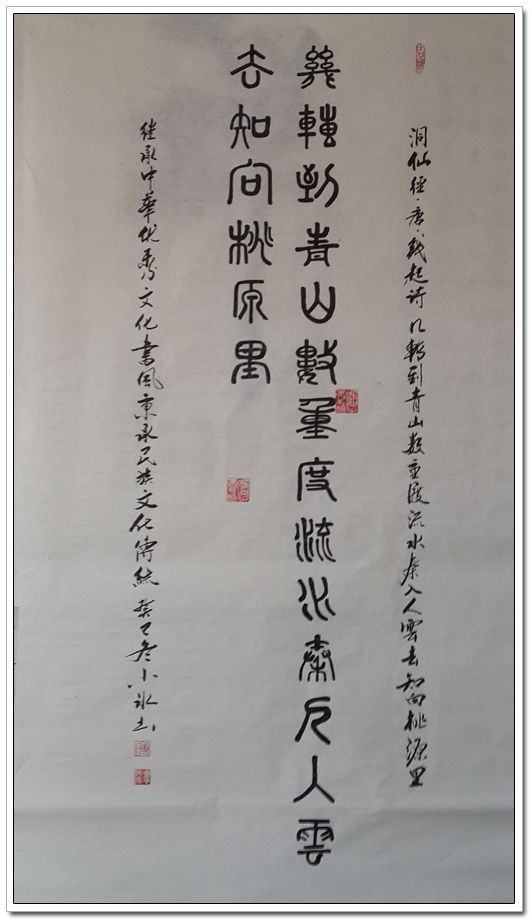 洞仙徑唐钱起诗几轉到青山数重渡流水秦入人雲去知向桃源里
幾轉到青山數重度流水秦人雲
去知向桃原里
继承中華优秀文化書風秉承民族文化傳統癸巳冬小冰书